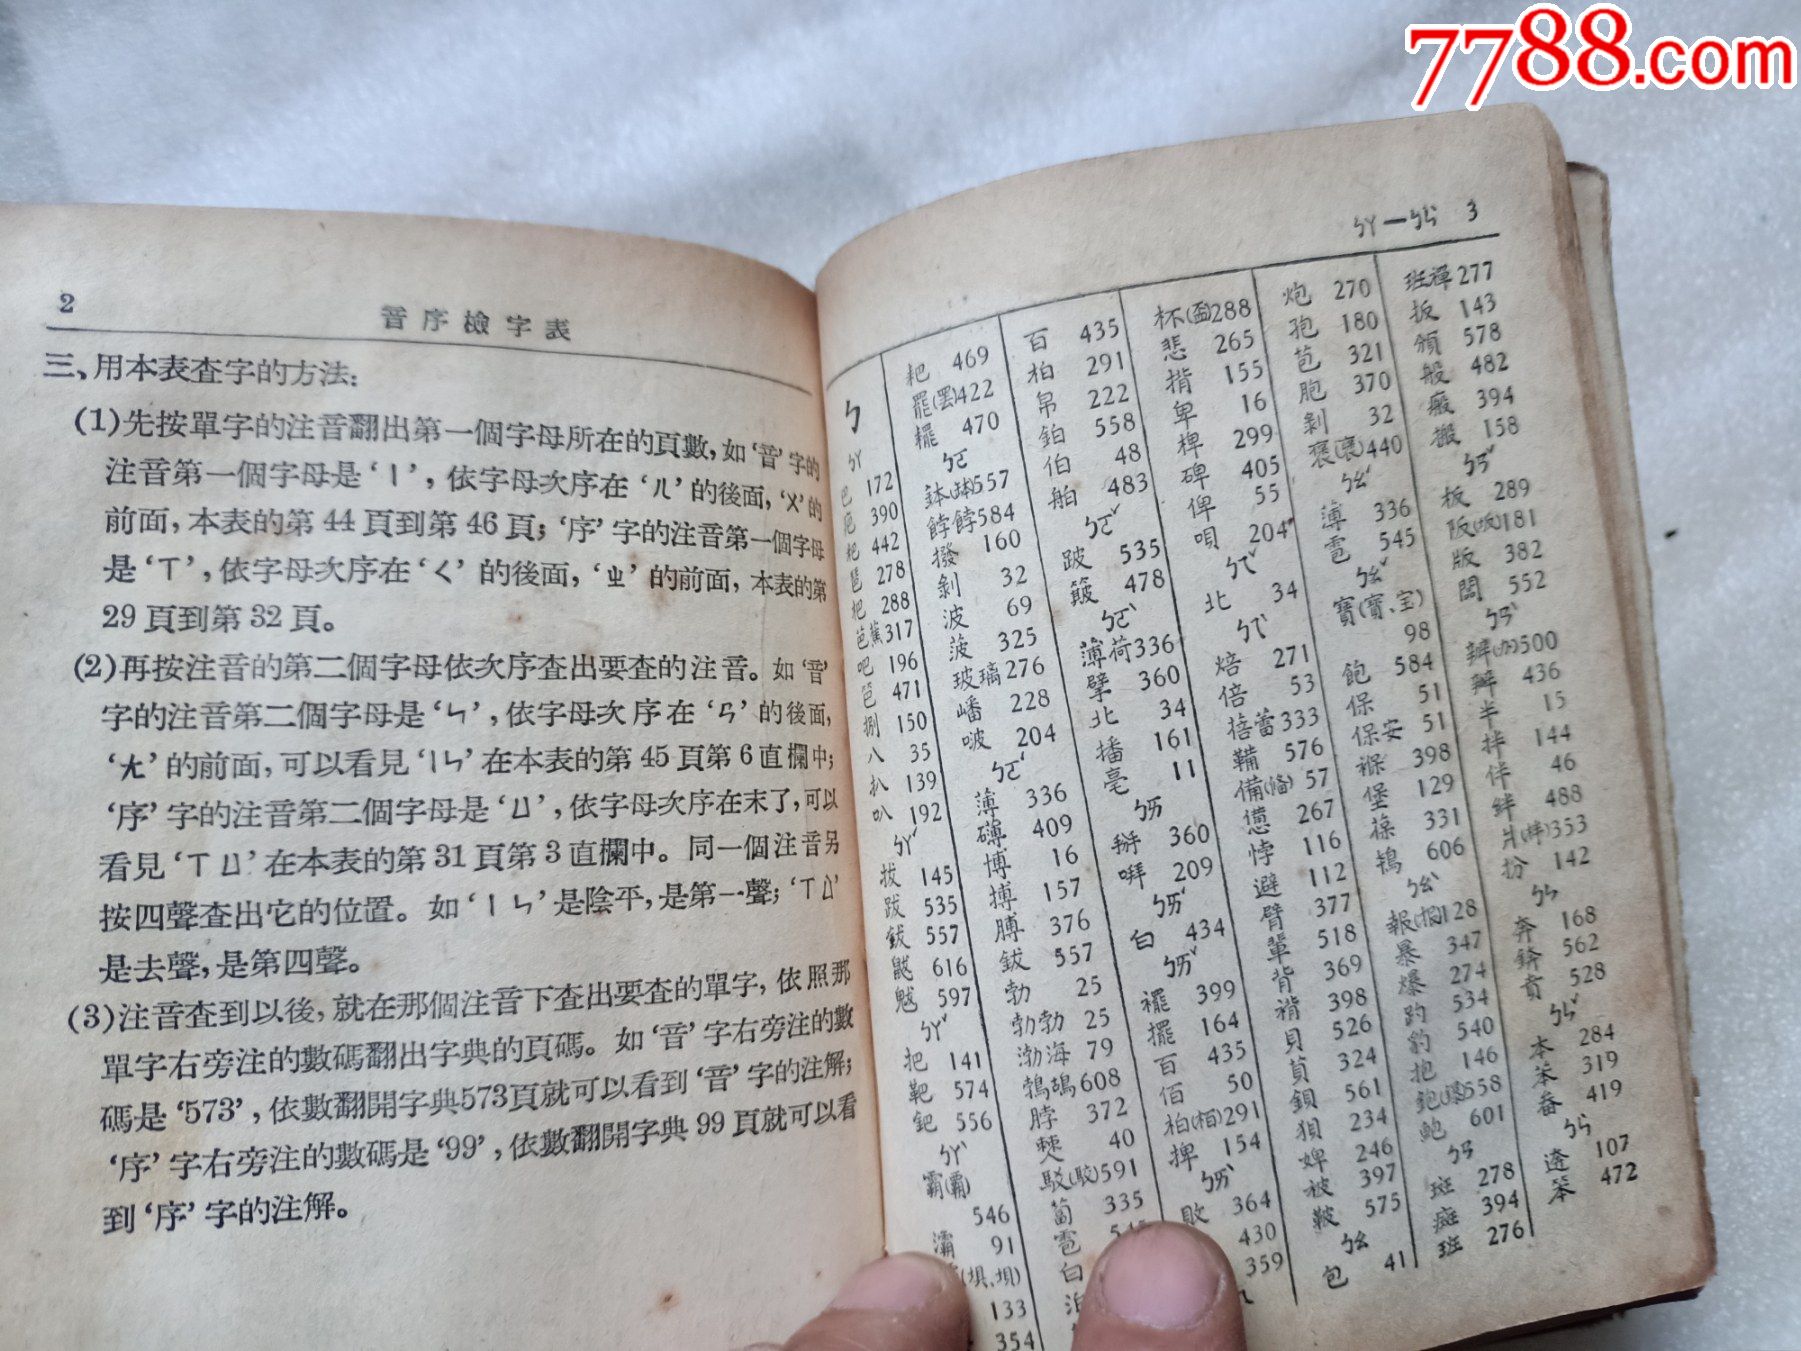 7788.com
2
音序檢字表
三、用本表查字的方法:
(1)先按單字的注音翻出第一個字母所在的頁數,如‘音’字的
注音第一個字母是‘丨’,依字母次序在‘ㄦ’的後面,‘ㄨ’的
前面,本表的第44頁到第46頁;‘序’字的注音第一個字母
是‘ㄒ’,依字母次序在‘ㄑ’的後面,‘ㄓ’的前面,本表的第
29頁到第32頁。
(2)再按注音的第二個字母依次序查出要查的注音。如‘音’
字的注音第二個字母是‘ㄣ’,依字母次序在‘ㄢ’的後面,
‘ㄤ’的前面,可以看見‘丨ㄣ’在本表的第45頁第6直欄中;
‘序’字的注音第二個字母是‘ㄩ’,依字母次序在末了,可以
看見‘ㄒㄩ’在本表的第31頁第3直欄中。同一個注音另
按四聲查出它的位置。如‘丨ㄣ’是陰平,是第一聲;‘ㄒㄩˋ’
是去聲,是第四聲。
(3)注音查到以後,就在那個注音下查出要查的單字,依照那
單字右旁注的數碼翻出字典的頁碼。如‘音’字右旁注的數
碼是‘573’,依數翻開字典573頁就可以看到‘音’字的注解;
‘序’字右旁注的數碼是‘99’,依數翻開字典99頁就可以看
到‘序’字的注解。
ㄅㄚ—ㄅㄣˋ 3
ㄅ
ㄅㄚ
巴 172
疤 390
粑 442
琶 278
杷 288
芭蕉 317
吧 196
笆 471
捌 150
八 35
扒 139
叭 192
ㄅㄚˊ
拔 145
跋 535
鈸 557
鼥 616
魃 597
ㄅㄚˇ
把 141
靶 574
鈀 556
ㄅㄚˋ
霸(覇)
546
灞 91
(垻、埧)
133
354
耙 469
罷(罢)422
糶 470
ㄅㄛ
鉢(缽)557
餑餑584
撥 160
剝 32
波 69
菠 325
玻璃276
嶓 228
啵 204
ㄅㄛˊ
薄 336
礴 409
博 16
搏 157
膊 376
鈸 557
勃 25
勃勃 25
渤海 79
鵓鴣608
脖 372
僰 40
駁(駮)591
蔔 335
雹 545
白
泊
百 435
柏 291
帛 222
鉑 558
伯 48
舶 483
ㄅㄛˇ
跛 535
簸 478
ㄅㄛˋ
薄荷336
擘 360
北 34
播 161
亳 11
ㄅㄞ
掰 360
唪 209
ㄅㄞˊ
白 434
ㄅㄞˇ
襬 399
擺 164
百 435
佰 50
柏(栢)291
捭 154
ㄅㄞˋ
敗 364
430
359
杯(盃)288
悲 265
揹 155
卑 16
椑 299
碑 405
俾 55
唄 204
ㄅㄟˇ
北 34
ㄅㄟˋ
焙 271
倍 53
蓓蕾333
鞴 576
備(俻) 57
憊 267
悖 116
避 112
臂 377
輩 518
背 369
褙 398
貝 526
萯 324
鋇 561
狽 234
婢 246
被 397
鞁 575
ㄅㄠ
包 41
炮 270
孢 180
苞 321
胞 370
剝 32
褒(襃)440
ㄅㄠˊ
薄 336
雹 545
ㄅㄠˇ
寶(寳、宝)
98
飽 584
保 51
保安 51
褓 398
堡 129
葆 331
鴇 606
ㄅㄠˋ
報 128
暴 347
爆 274
趵 534
豹 540
抱 146
鉋558
鮑 601
ㄅㄢ
班 278
癍 394
斑 276
班禪277
扳 143
頒 578
般 482
瘢 394
搬 158
ㄅㄢˇ
板 289
阪(坂)181
版 382
闆 552
ㄅㄢˋ
辦(办)500
瓣 436
半 15
拌 144
伴 46
絆 488
爿353
扮 142
ㄅㄣ
奔 168
錛 562
賁 528
ㄅㄣˇ
本 284
苯 319
畚 419
ㄅㄣˋ
逩 107
笨 472